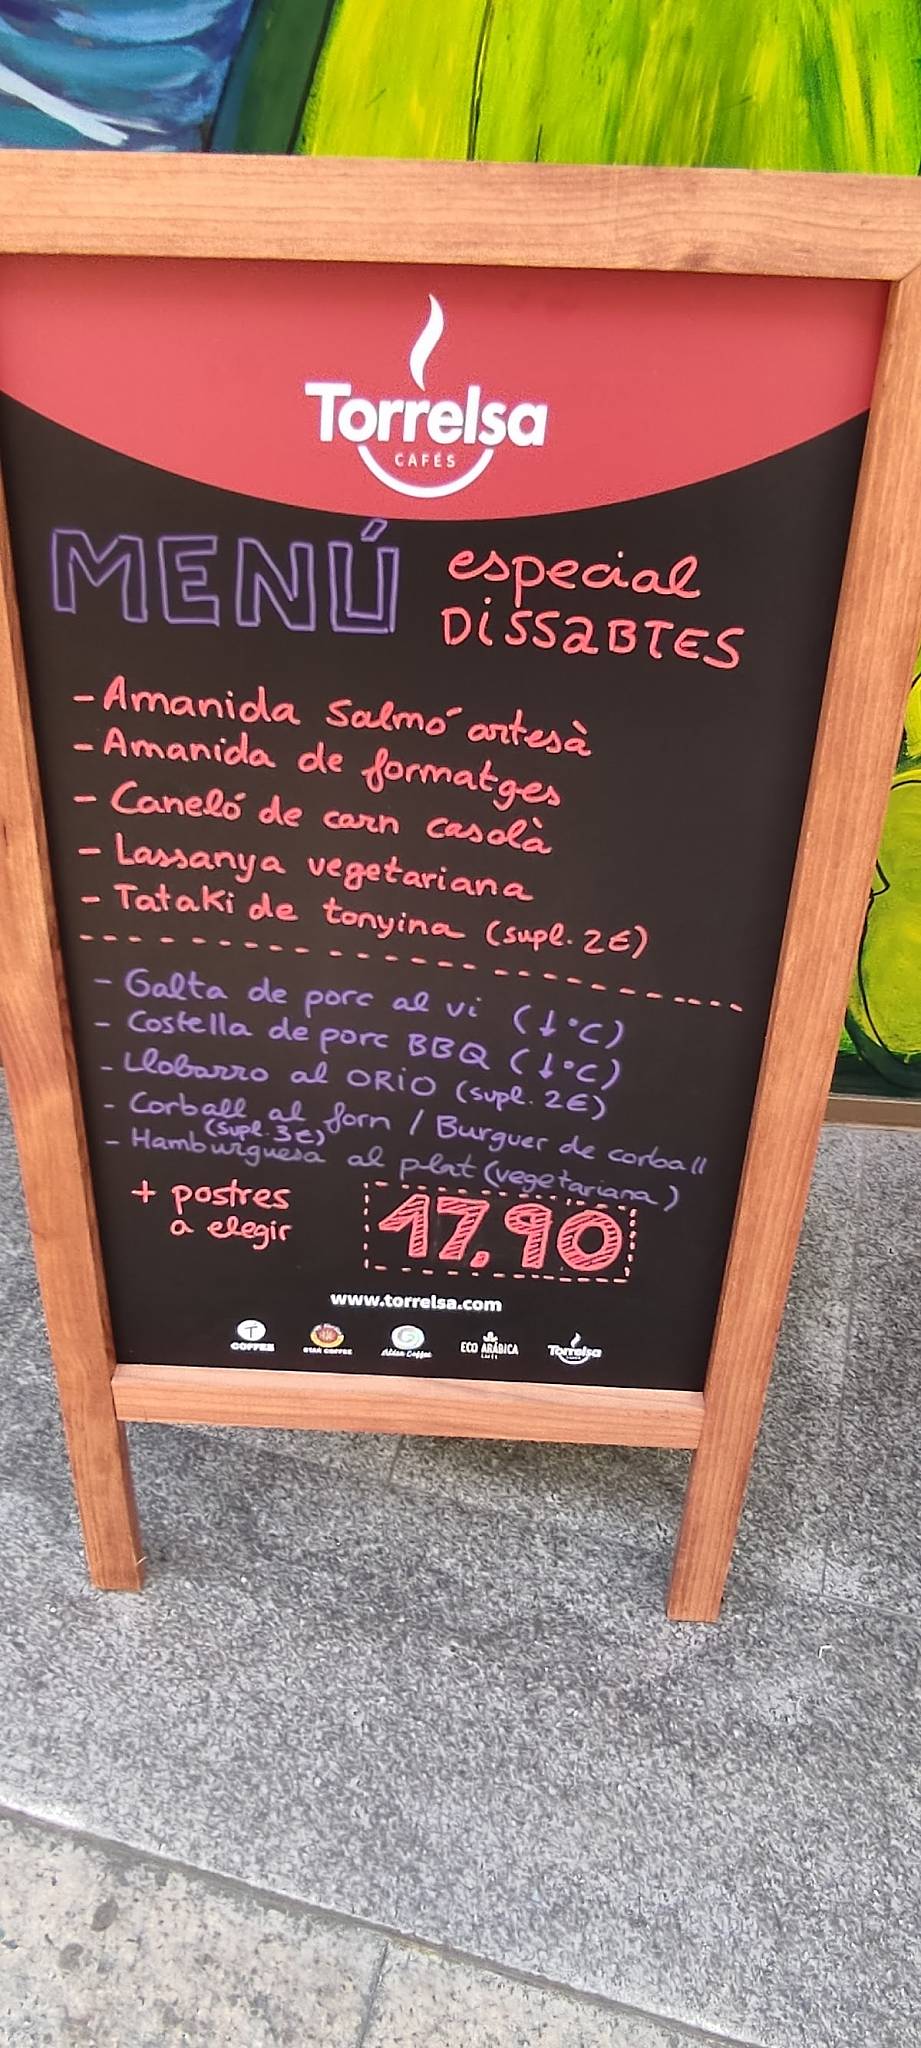 Torrelsa
CAFÉS
MENÚ especial
DISSaBTES
- Amanida Salmó artesà
- Amanida de formatges
- Caneló de carn casolà
- Lassanya vegetariana
- Tataki de tonyina (supl. 2€)
- Galta de porc al vi (↓°C)
- Costella de porc BBQ (↓°C)
- Llobarro al ORIO (supl. 2€)
- Corball al forn / Burguer de corball
(supl. 3€)
- Hamburguesa al plat (vegetariana)
+ postres
a elegir
17,90
www.torrelsa.com
T COFFEE STAR COFFEE Alden Coffee ECO ARÁBICA Torrelsa